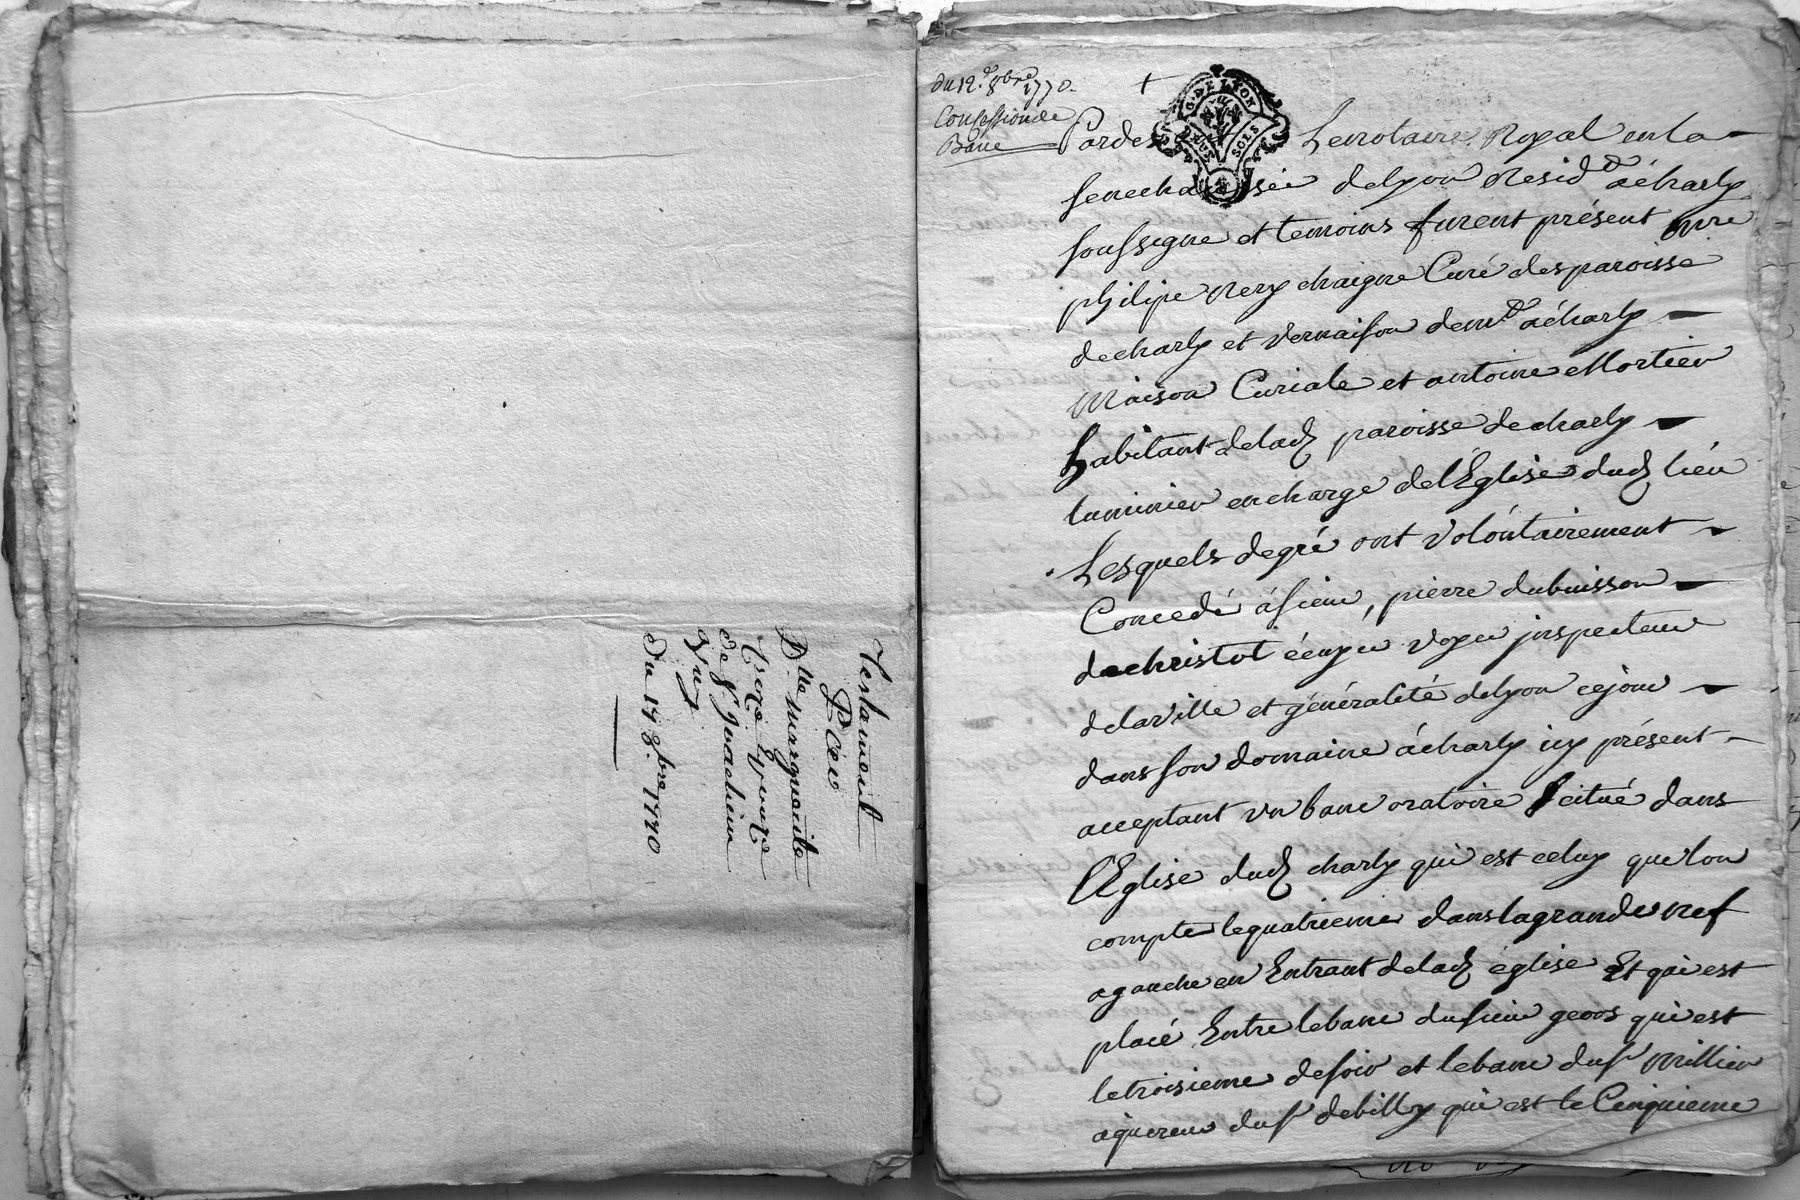 Testament
De
Dlle marguerite
du 14 8bre 1770
du 12e 8bre 1770.
Concession de
Banc
G. DE LYON
DEUX SOLS
Pardev Le notaire Royal en la
senechaussée de lyon Residt a charly
soussigne et temoins furent présent mre
philipe Nery chaigne Curé des paroisse
de charly et vernaison demt a charly
Maison Curiale et antoine Mortier
habitant de lad paroisse de charly
luminier en charge de l'Eglise dud lieu
Lesquels de gré ont volontairement
Concedé á sieur, pierre dubuisson
de christot écuyer voyer jnspecteur
de la ville et généralité de lyon ce jour
dans son domaine á charly icy présent
acceptant un banc oratoire Scitué dans
l'Eglise dud charly qui est celuy que lon
compte le quatrieme dans la grande nef
a gauche en Entrant de lad église Et qui est
placé Entre le banc du sieur geoos qui est
le troisieme de soir et le banc du sr Millier
aquereur du sr de billy qui est le Cinquieme